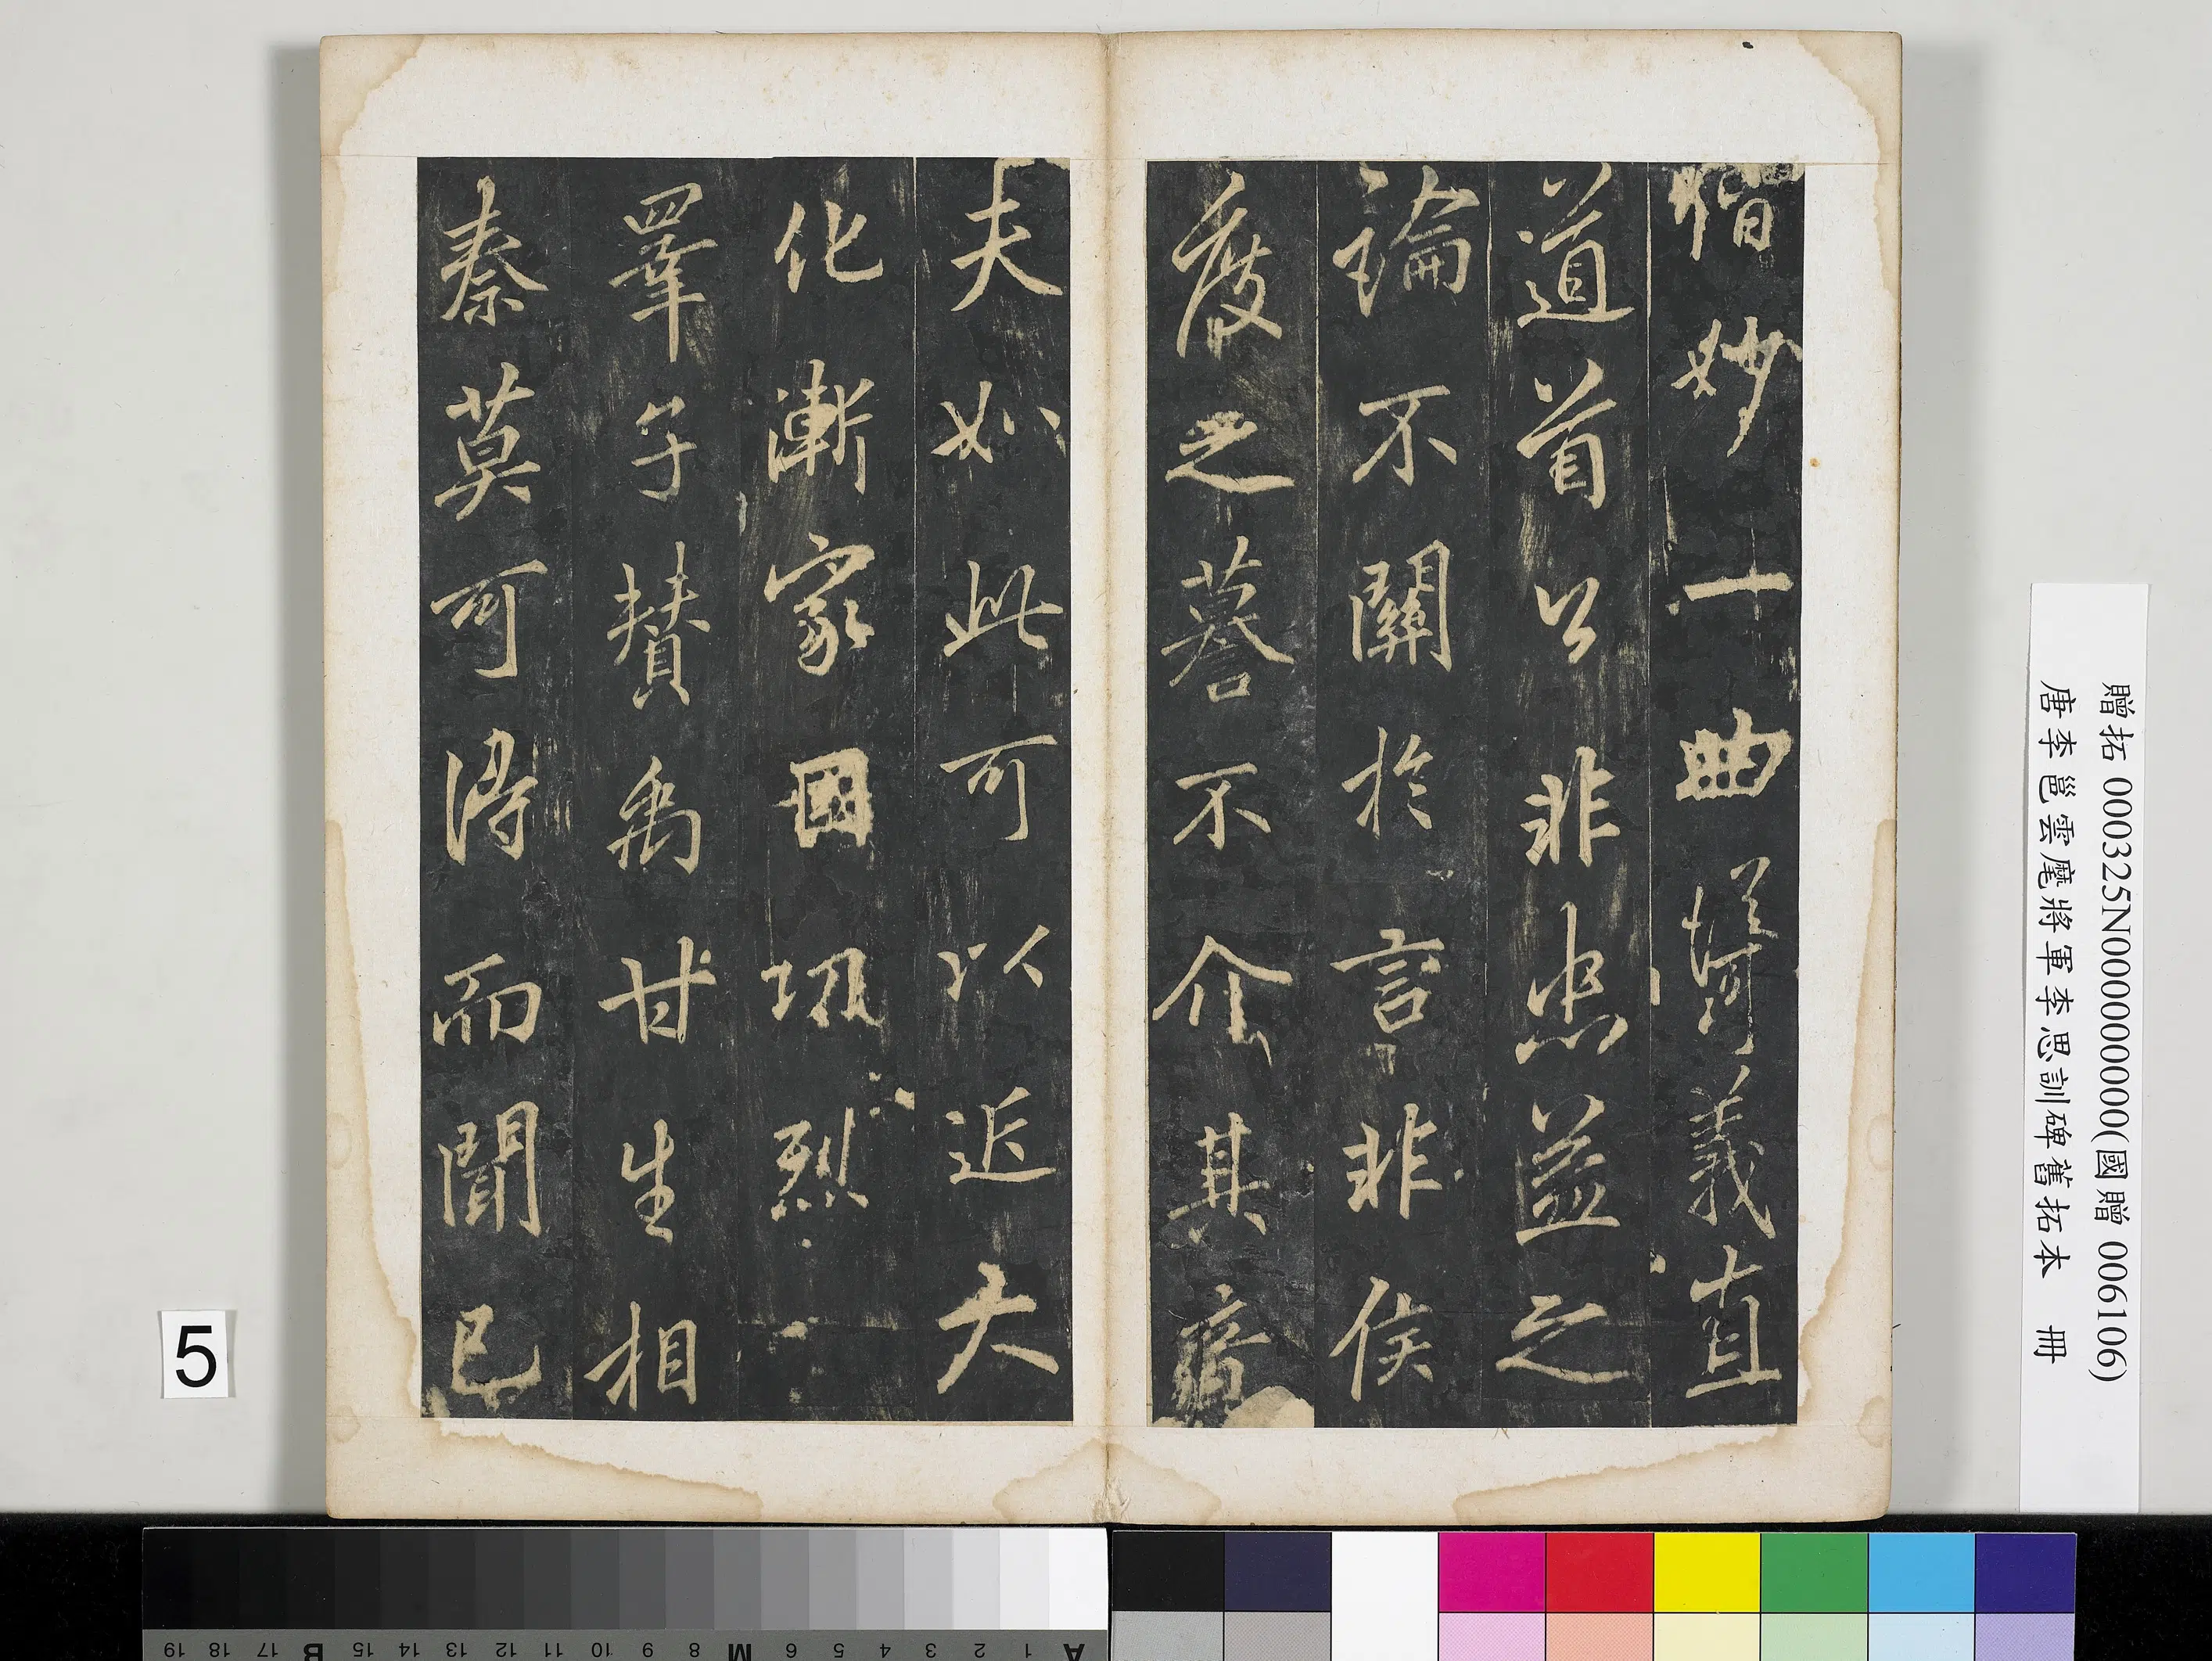 偕妙一曲義直
道首公非忠益之
論不關於言非侯
度之謩不介其意
夫如此可以近大
化漸家國㓛烈
睪子贊禹甘生相
秦莫可得而聞已
贈拓 000325N000000000(國贈 006106)
唐李邕雲麾將軍李思訓碑舊拓本 冊
5
A 1 2 3 4 5 6 M 8 9 10 11 12 13 14 15 B 17 18 19